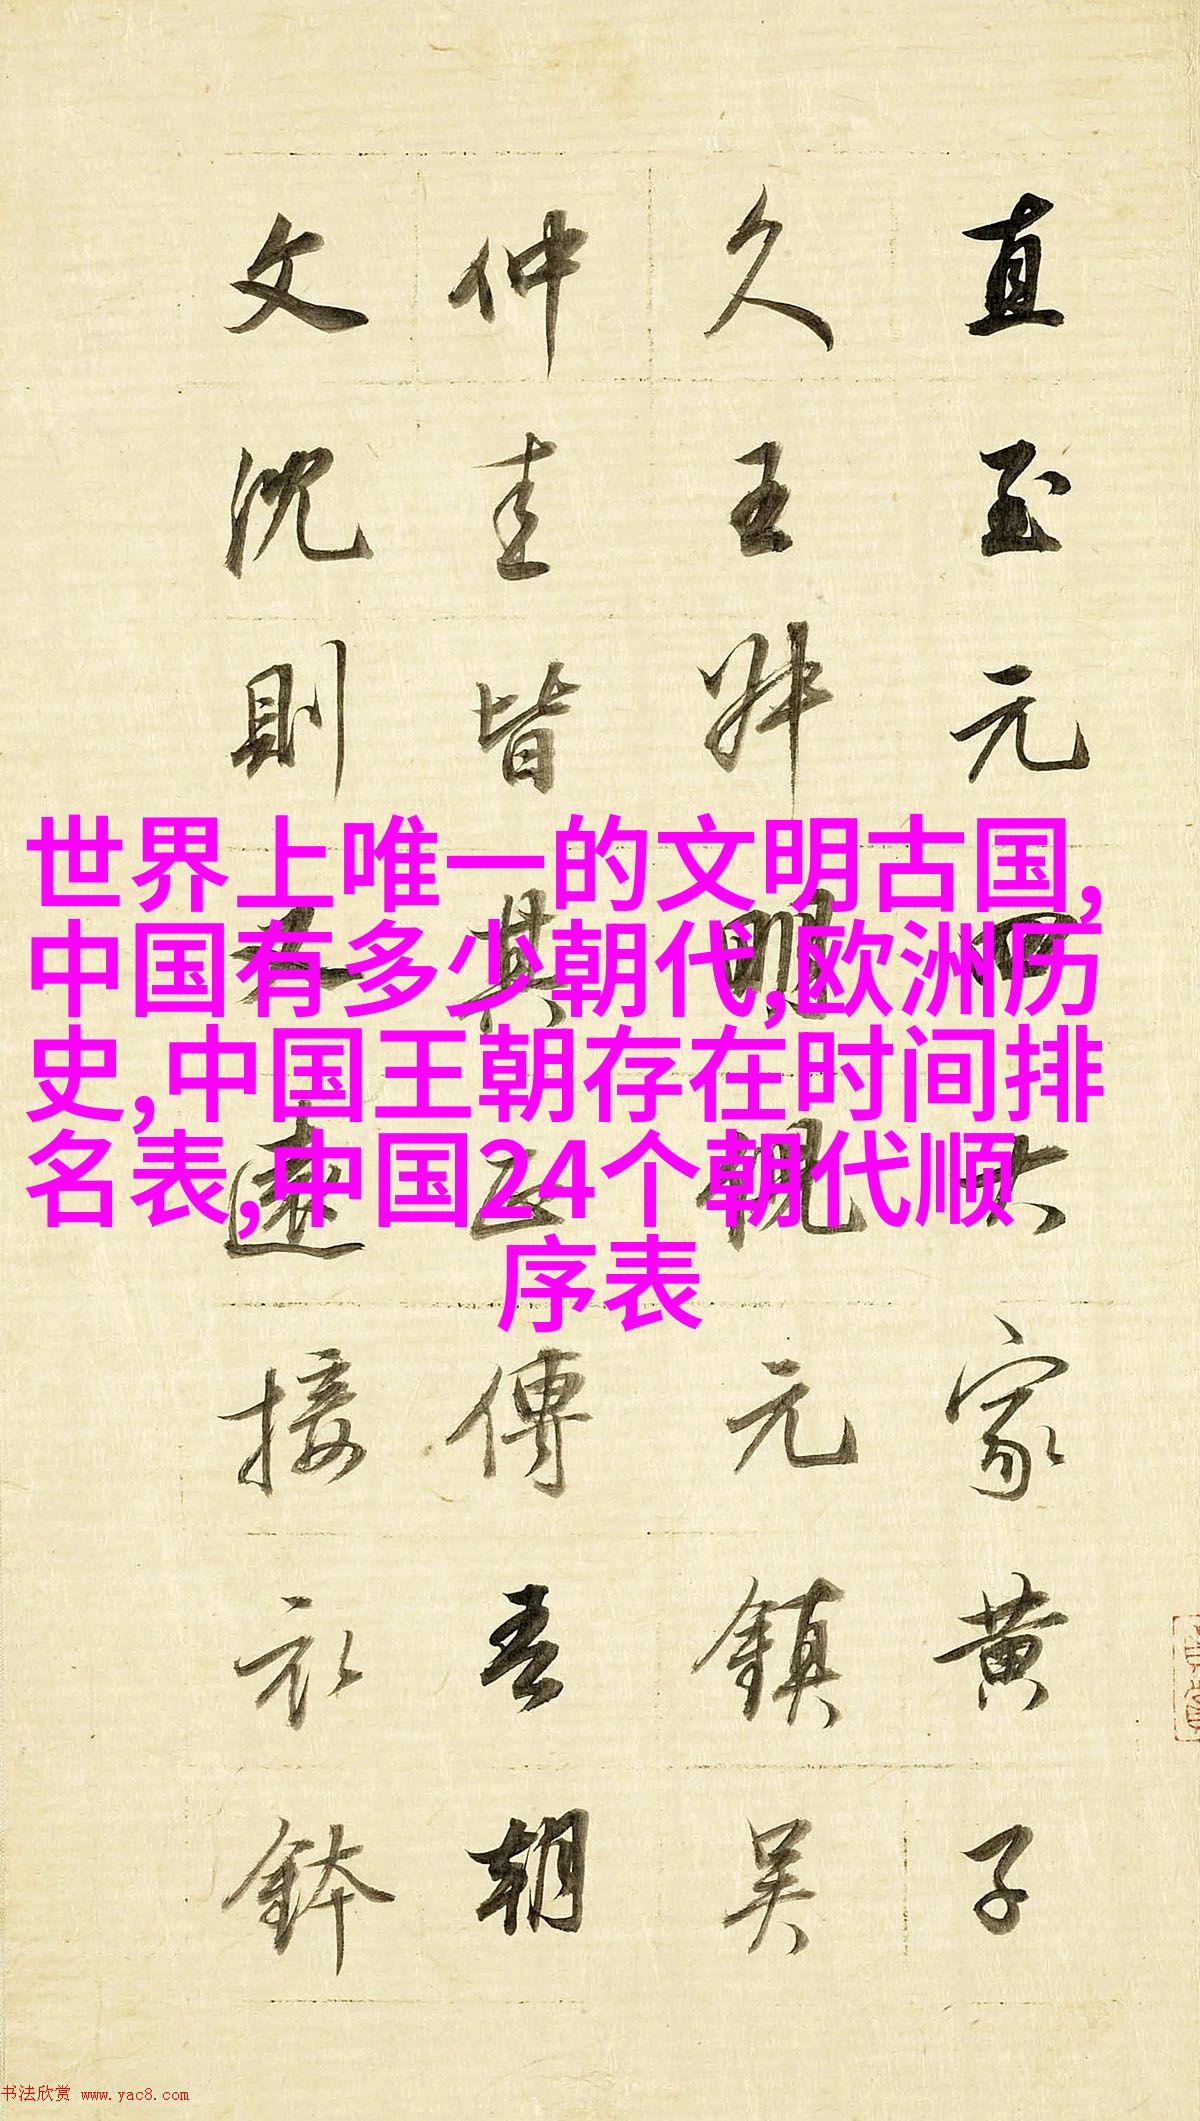 世界上唯一的文明古国,
中国有多少朝代,欧洲历
史,中国王朝存在时间排
名表,中国24个朝代顺
序表
直至元四大家黄子
久王叔明倪元鎮吴
仲圭皆其正傳吾朝
文沈則又遠接衣鉢
书法欣赏 www.yac8.com